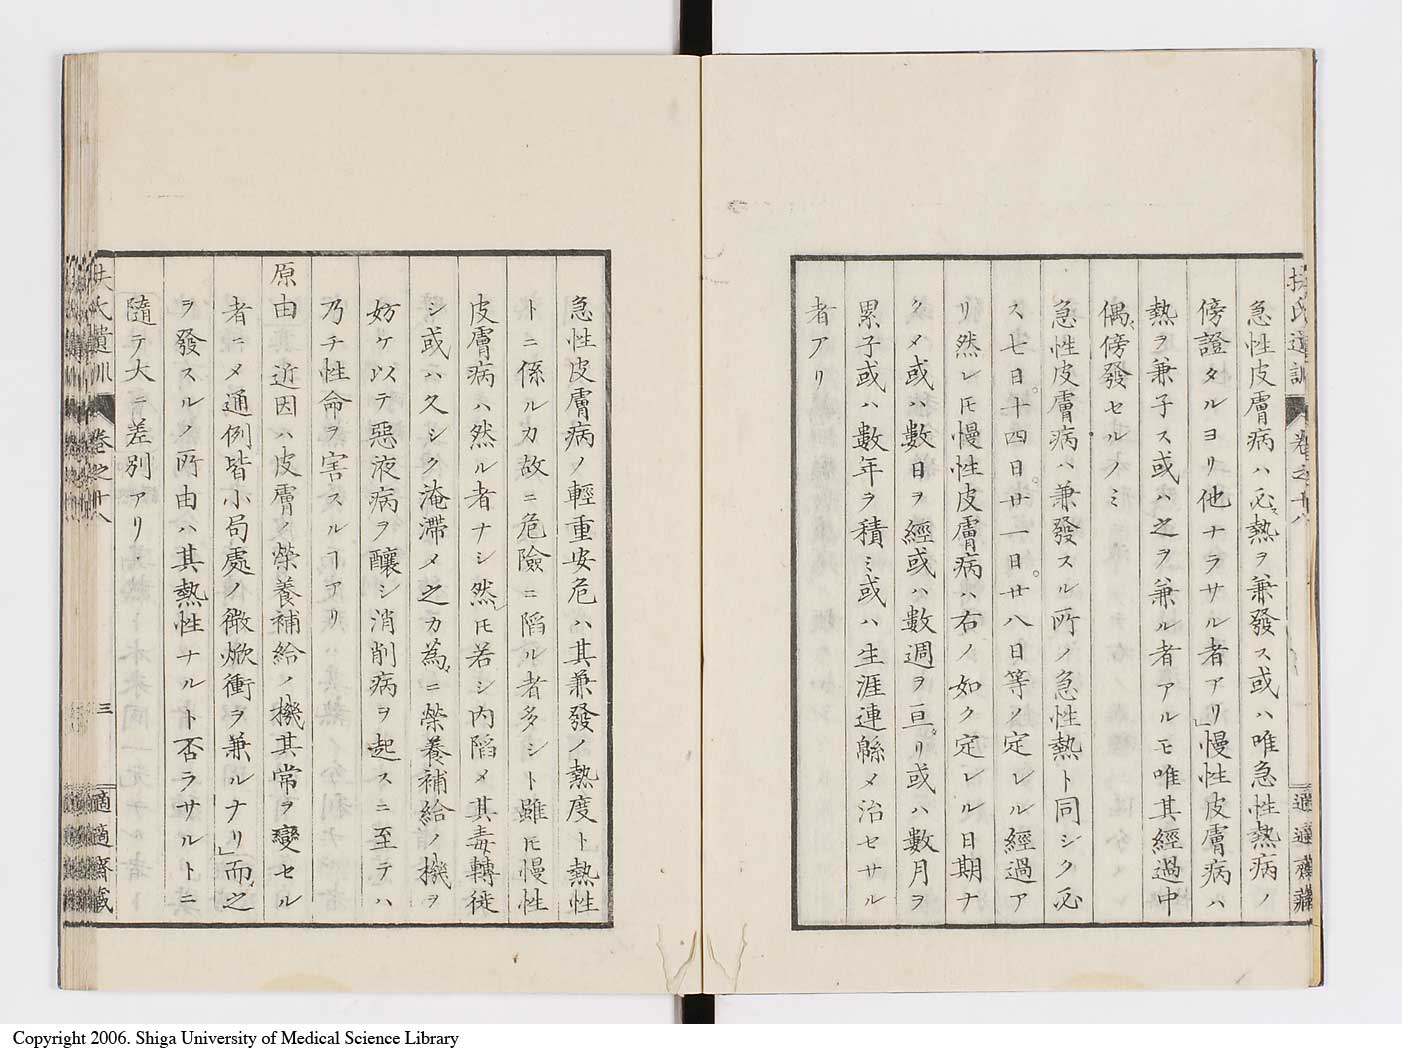 扶氏遺訓 卷之十八 適適齋藏
急性皮膚病ハ必熱ヲ兼發ス或ハ唯急性熱病ノ
傍證タルヨリ他ナラサル者アリ」慢性皮膚病ハ
熱ヲ兼子ス或ハ之ヲ兼ル者アルモ唯其經過中
偶傍發セルノミ
急性皮膚病ハ兼發スル所ノ急性熱ト同シク必
ス七日。十四日。廿一日。廿八日等ノ定レル經過ア
リ然レ𪜈慢性皮膚病ハ右ノ如ク定レル日期ナ
クメ或ハ數日ヲ經或ハ數週ヲ亘リ或ハ數月ヲ
累子或ハ數年ヲ積ミ或ハ生涯連緜メ治セサル
者アリ
急性皮膚病ノ輕重安危ハ其兼發ノ熱度ト熱性
トニ係ルカ故ニ危險ニ陷ル者多シト雖𪜈慢性
皮膚病ハ然ル者ナシ然𪜈若シ内陷メ其毒轉徙
シ或ハ久シク淹滯メ之カ為ニ榮養補給ノ機ヲ
妨ケ以テ惡液病ヲ釀シ消削病ヲ起スニ至テハ
乃チ性命ヲ害スルヿアリ
原由 近因ハ皮膚ノ榮養補給ノ機其常ヲ變セル
者ニメ通例皆小局處ノ微焮衝ヲ兼ルナリ」而之
ヲ發スルノ所由ハ其熱性ナルト否ラサルトニ
隨テ大ニ差別アリ
扶氏遺訓 卷之十八 三 適適齋藏
Copyright 2006. Shiga University of Medical Science Library